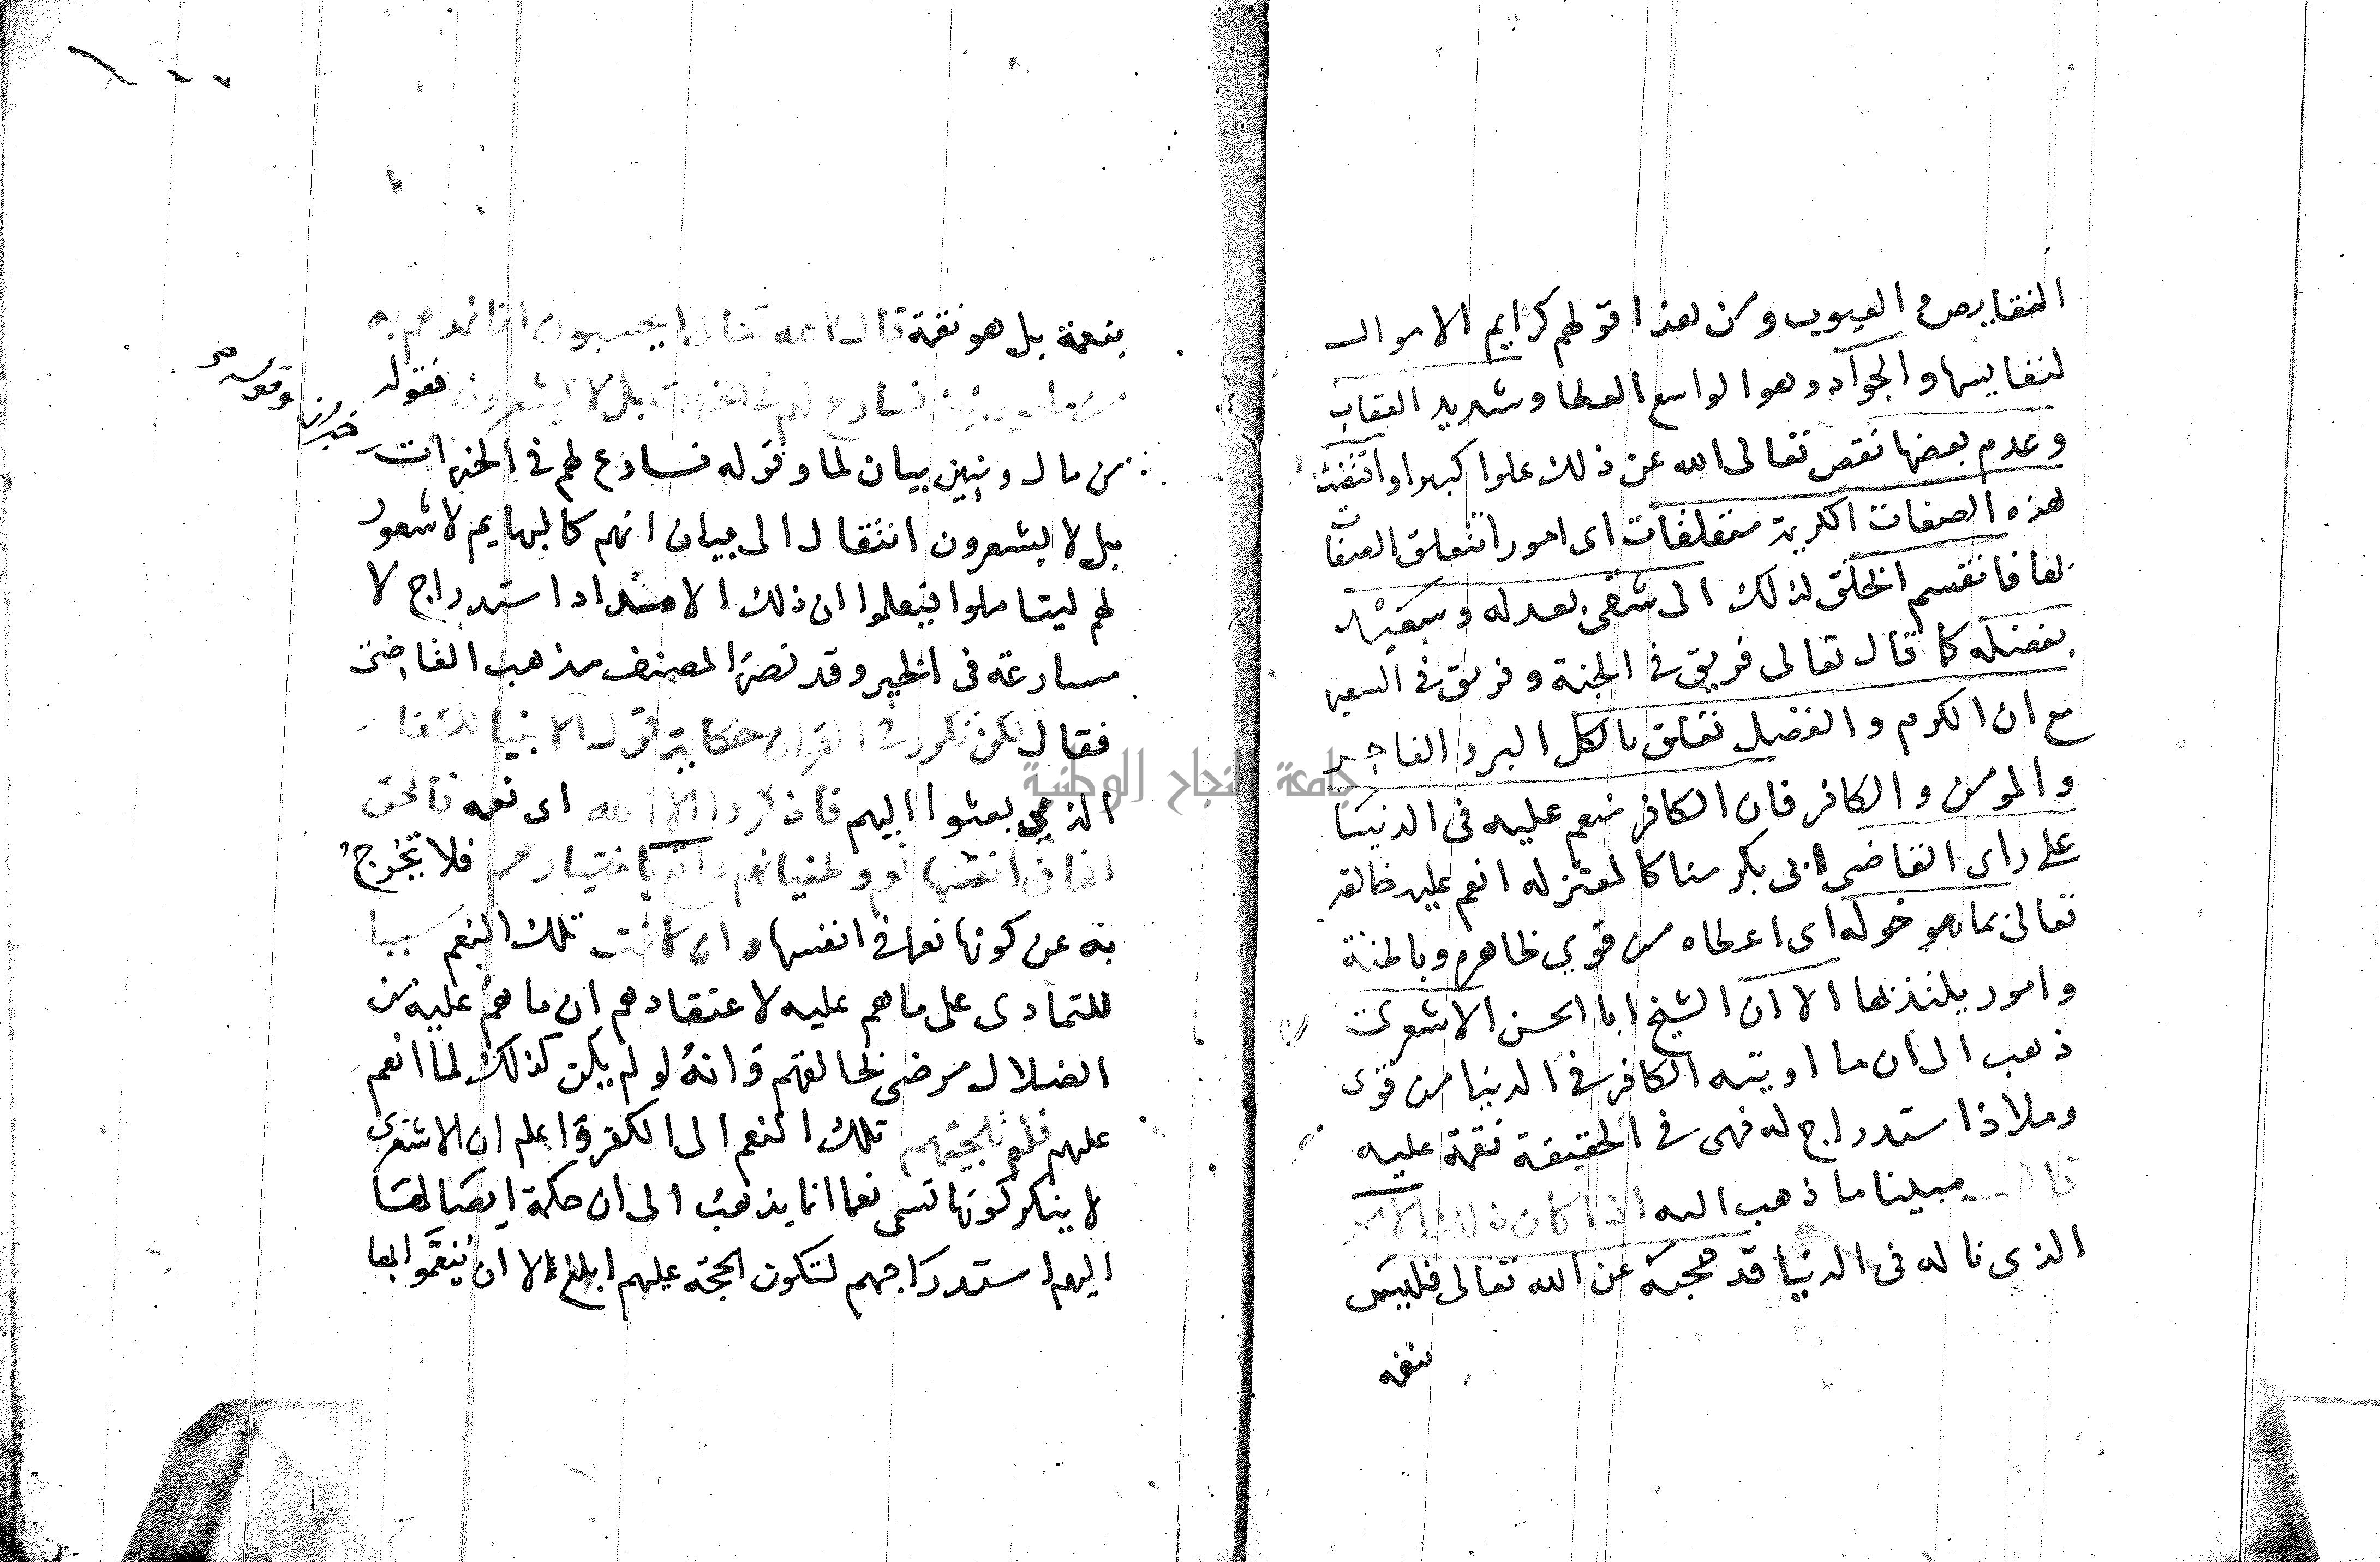 النقايص والعيوب ومن هذا قولهم كرايم الاموال
لنفايسها والجواد وهو الواسع العطا وشديد العقاب
وعدم بعضها نقص تعالى الله عن ذلك علوا كبيرا واقتضت
هذه الصفات الكريمة متعلقات اى امورا تتعلق الصفات
بها فانقسم الخلق لذلك الى شقى بعدله وسعيد
بفضله كما قال تعالى فريق فى الجنة وفريق فى السعير
مع ان الكرم والفضل تعلق بالكل البر والفاجر
والمومن والكافر فان الكافر منعم عليه فى الدنيا
على راى القاضى ابى بكر منا كالمعتزله انعم عليه خالقه
تعالى بما هو خوله اى اعطاه من قوي ظاهره وباطنة
وامور يلتذ بها الا ان الشيخ ابا الحسن الاشعرى
ذهب الى ان ما اوتيه الكافر فى الدنيا من قوى
وملاذ استدراج له فهى فى الحقيقة نقمة عليه
مبينا ما ذهب اليه اذا كان ذلك الامر
الذى ناله فى الدنيا قد حجبه عن الله تعالى فليس
بنعمة
بنعمة بل هو نقمة قال الله تعالى ايحسبون انما نمدهم به
من مال وبنين نسارع لهم فى الخيرات بل لا يشعرون فقوله
من مال وبنين بيان لما وقوله نسارع لهم فى الخيرات خبر ان وقوله
بل لا يشعرون انتقال الى بيان انهم كالبهايم لا شعور
لهم ليتاملوا فيعلموا ان ذلك الامداد استدراج لا
مسارعة فى الخير وقد نصر المصنف مذهب القاضى
فقال لكن تكرر فى القران حكاية قول الانبيا للكفار
الذين بعثوا اليهم فاذكروا الاء الله اى نعمه فالحق
انها فى انفسها نعم وطغيانهم واقع باختيارهم فلا تخرج
به عن كونها نعما فى انفسها وان كانت تلك النعم سببا
للتمادى على ما هم عليه لاعتقادهم ان ما هم عليه من
الضلال مرضى لخالقهم وانه لو لم يكن كذلك لما انعم
عليهم تلك النعم الى الكفر واعلم ان الاشعرى
لا ينكر كونها تسمى نعما انما يذهب الى ان حكمة ايصالها
اليهم استدراجهم لتكون الحجة عليهم ابلغ الا ان ينعموا بها
جامعة النجاح الوطنية